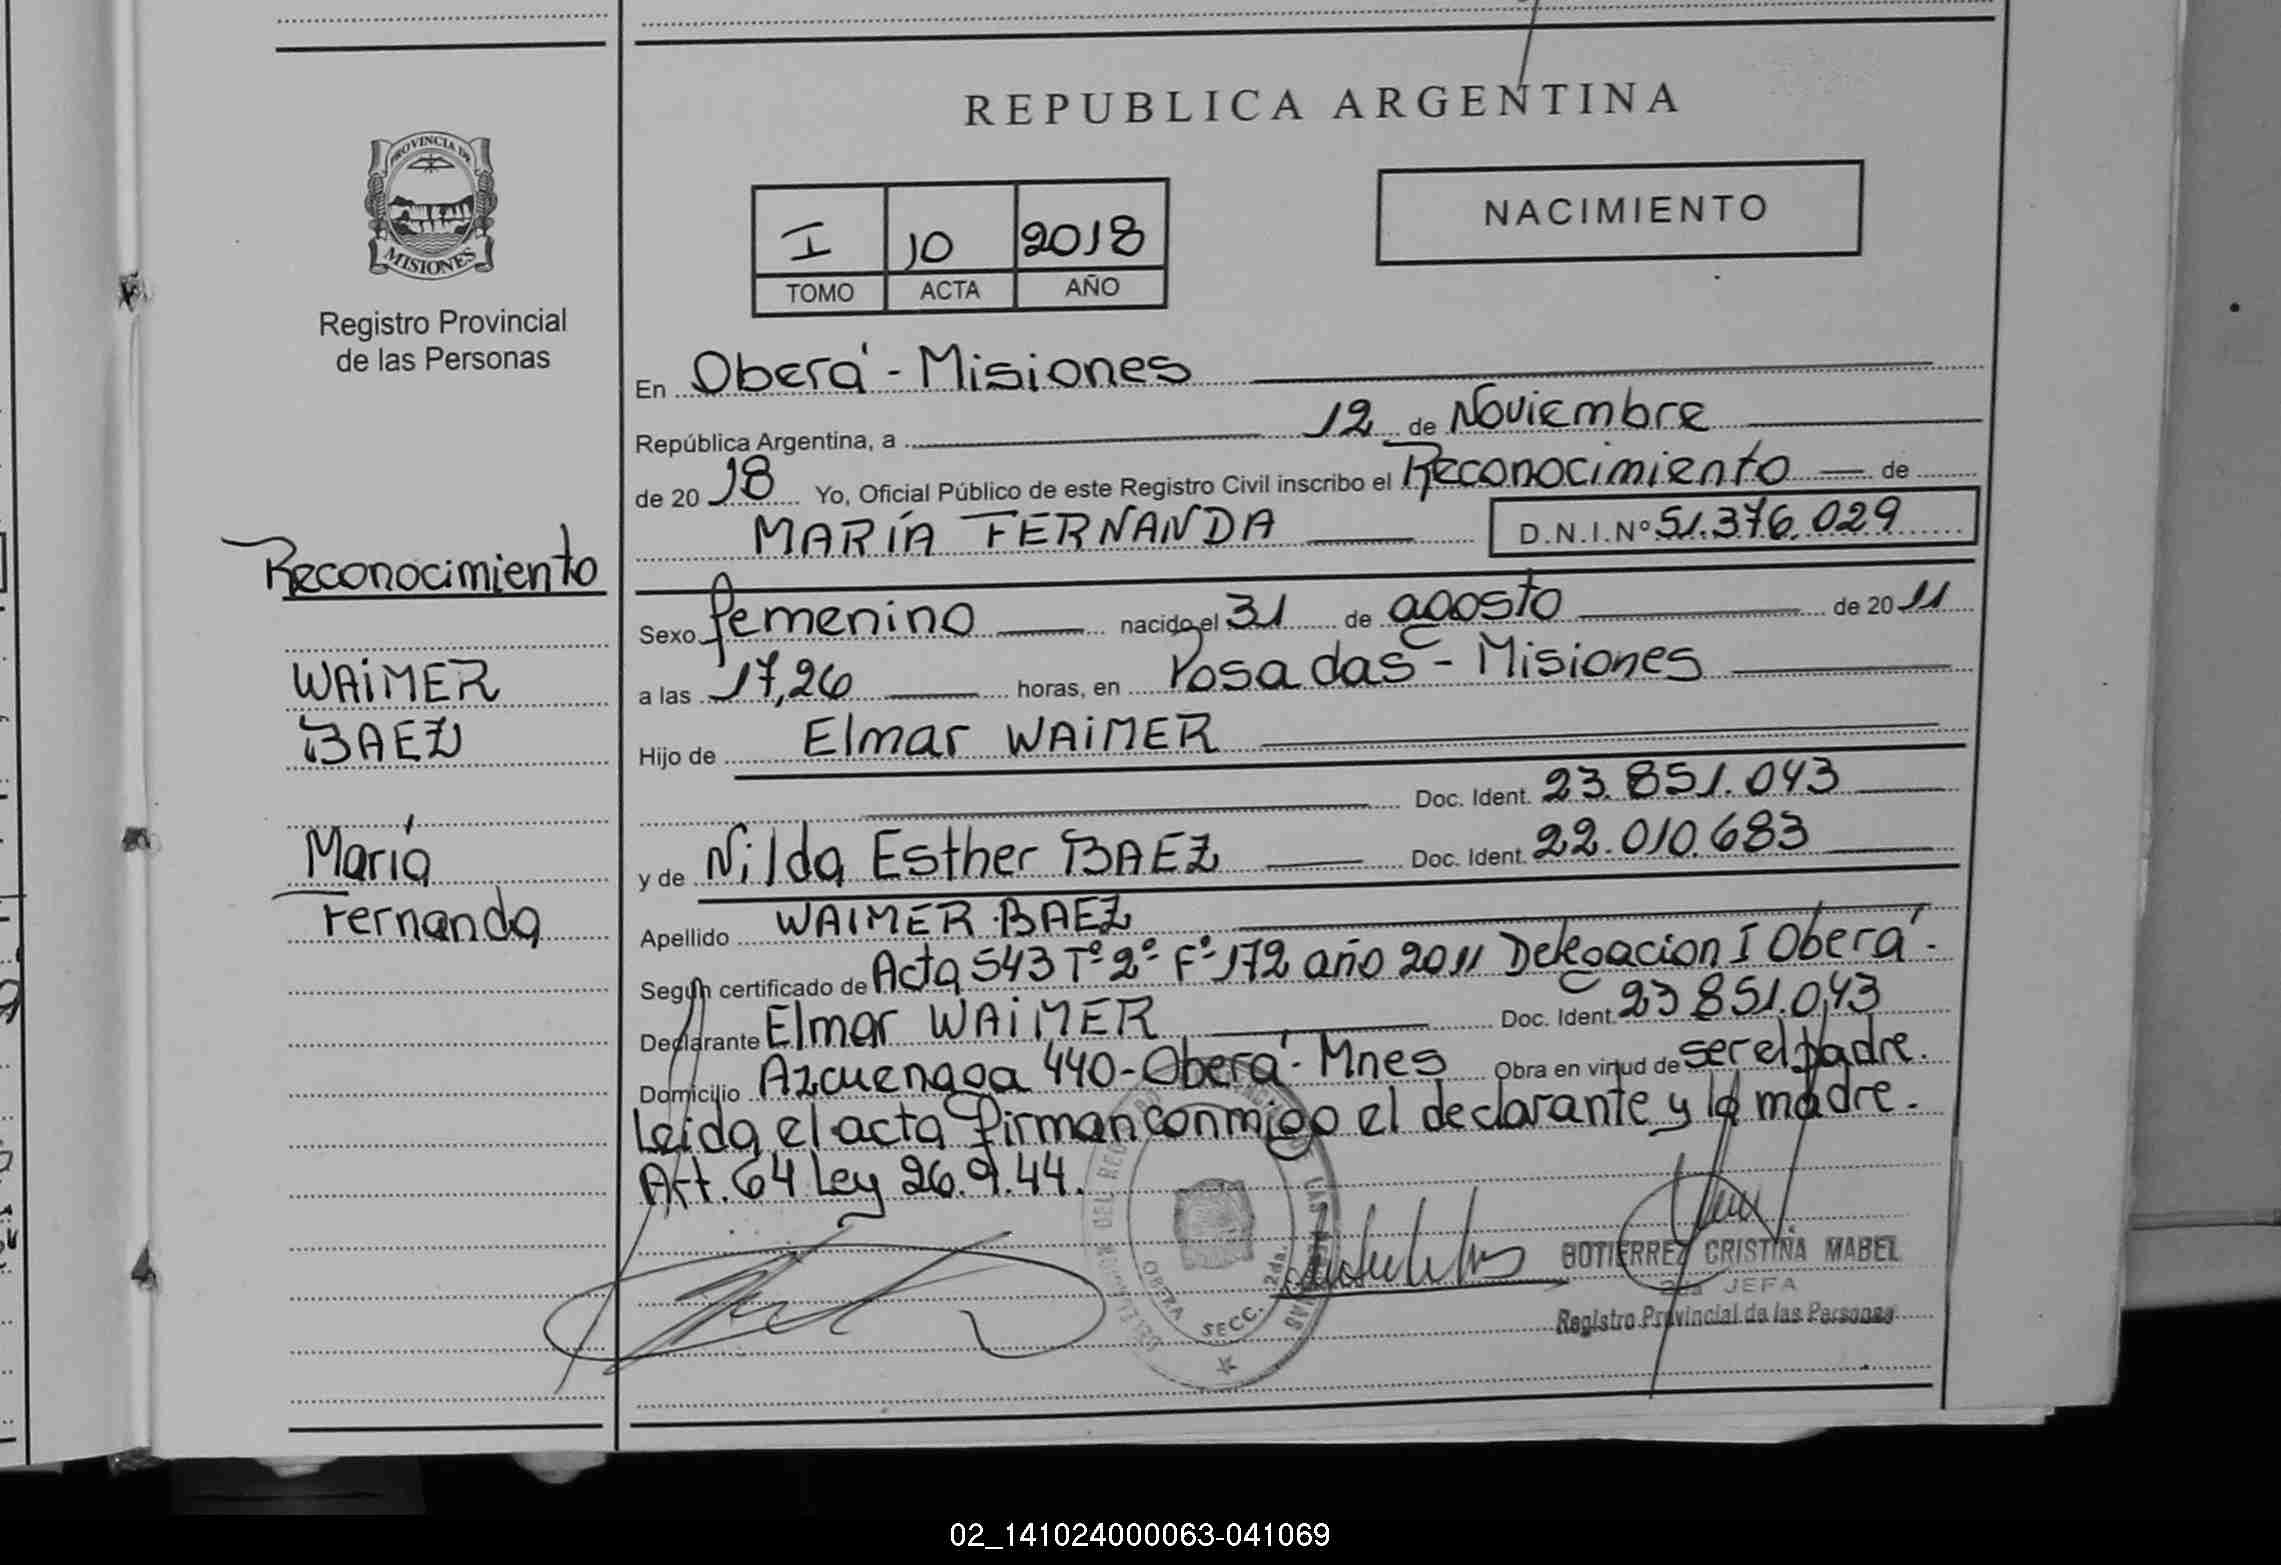 REPUBLICA ARGENTINA
PROVINCIA DE
MISIONES
Registro Provincial
de las Personas
NACIMIENTO
I 10 2018
TOMO ACTA AÑO
En Oberá - Misiones
República Argentina, a 12 de Noviembre
de 2018 Yo, Oficial Público de este Registro Civil inscribo el Reconocimiento de
MARÍA FERNANDA D.N.I.Nº 51.376.029
Reconocimiento
WAIMER
BAEZ
María
Fernanda
Sexo femenino nacido el 31 de agosto de 2011
a las 17,26 horas, en Posadas - Misiones
Hijo de Elmar WAIMER
Doc. Ident. 23.851.043
y de Nilda Esther BAEZ Doc. Ident. 22.010.683
Apellido WAIMER BAEZ
Según certificado de Acta 543 Tº 2º Fº 172 año 2011 Delegacion I Oberá.
Declarante Elmar WAIMER Doc. Ident. 23 851.043
Domicilio Azcuenaga 440 - Oberá - Mnes Obra en virtud de ser el padre.
Leida el acta firman conmigo el declarante y la madre.
Art. 64 Ley 26.9.44.
OBERA SECC. 2da.
GUTIERREZ CRISTINA MABEL
2da JEFA
Registro Provincial de las Personas
02_141024000063-041069